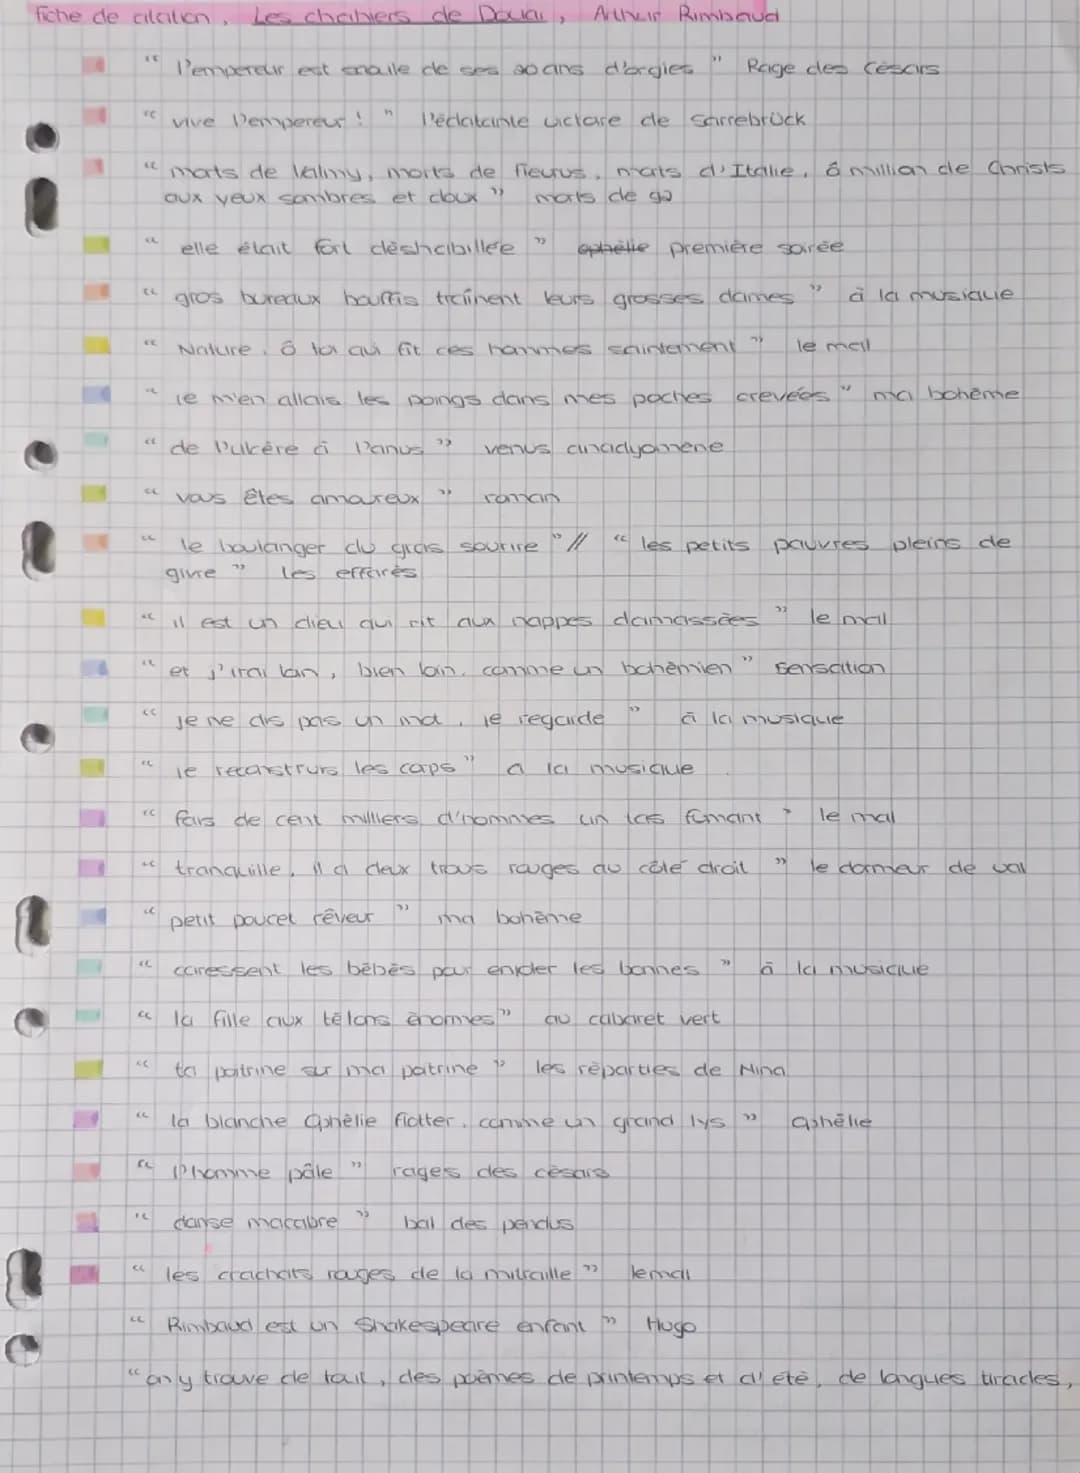 fiche de citation, Les chahiers de Douai, Arthur Rimbaud
" l'empereur est soule de ses 20 ans d'orgies " Rage des césars
" vive l'empereur ! " l'éclatante victoire de sarrebrück
" morts de Valmy, morts de fleurus, morts d'Italie, ô million de Christs
aux yeux sombres et doux " morts de 92
" elle était fort déshabillée " ophélie première soirée
" gros bureaux bouffis traînent leurs grosses dames " à la musique
" Nature, ô toi qui fit ces hommes saintement " le mal
" je m'en allais les poings dans mes poches crevées " ma bohème
" de l'ulcère à l'anus " venus anadyomène
" vous êtes amoureux " roman
" le boulanger du gras sourire " // " les petits pauvres pleins de
givre " les effarés
" il est un dieu qui rit aux nappes damassées " le mal
" et j'irai loin, bien loin, comme un bohémien " sensation
" je ne dis pas un mot, je regarde " à la musique
" je reconstruis les corps " a la musique
" fais de cent milliers d'hommes un tas fumant " le mal
" tranquille, il a deux trous rouges au côté droit " le dormeur de val
" petit poucet rêveur " ma bohème
" caressent les bébés pour enjoler les bonnes " à la musique
" la fille aux tétons énormes " au cabaret vert
" ta poitrine sur ma poitrine " les réparties de Nina
" la blanche Ophélie flotter, comme un grand lys " Ophélie
" l'homme pâle " rages des césars
" danse macabre " bal des pendus
" les crachats rouges de la mitraille " le mal
" Rimbaud est un Shakespeare enfant " Hugo
" on y trouve de tout, des poèmes de printemps et d'été, de longues tirades,